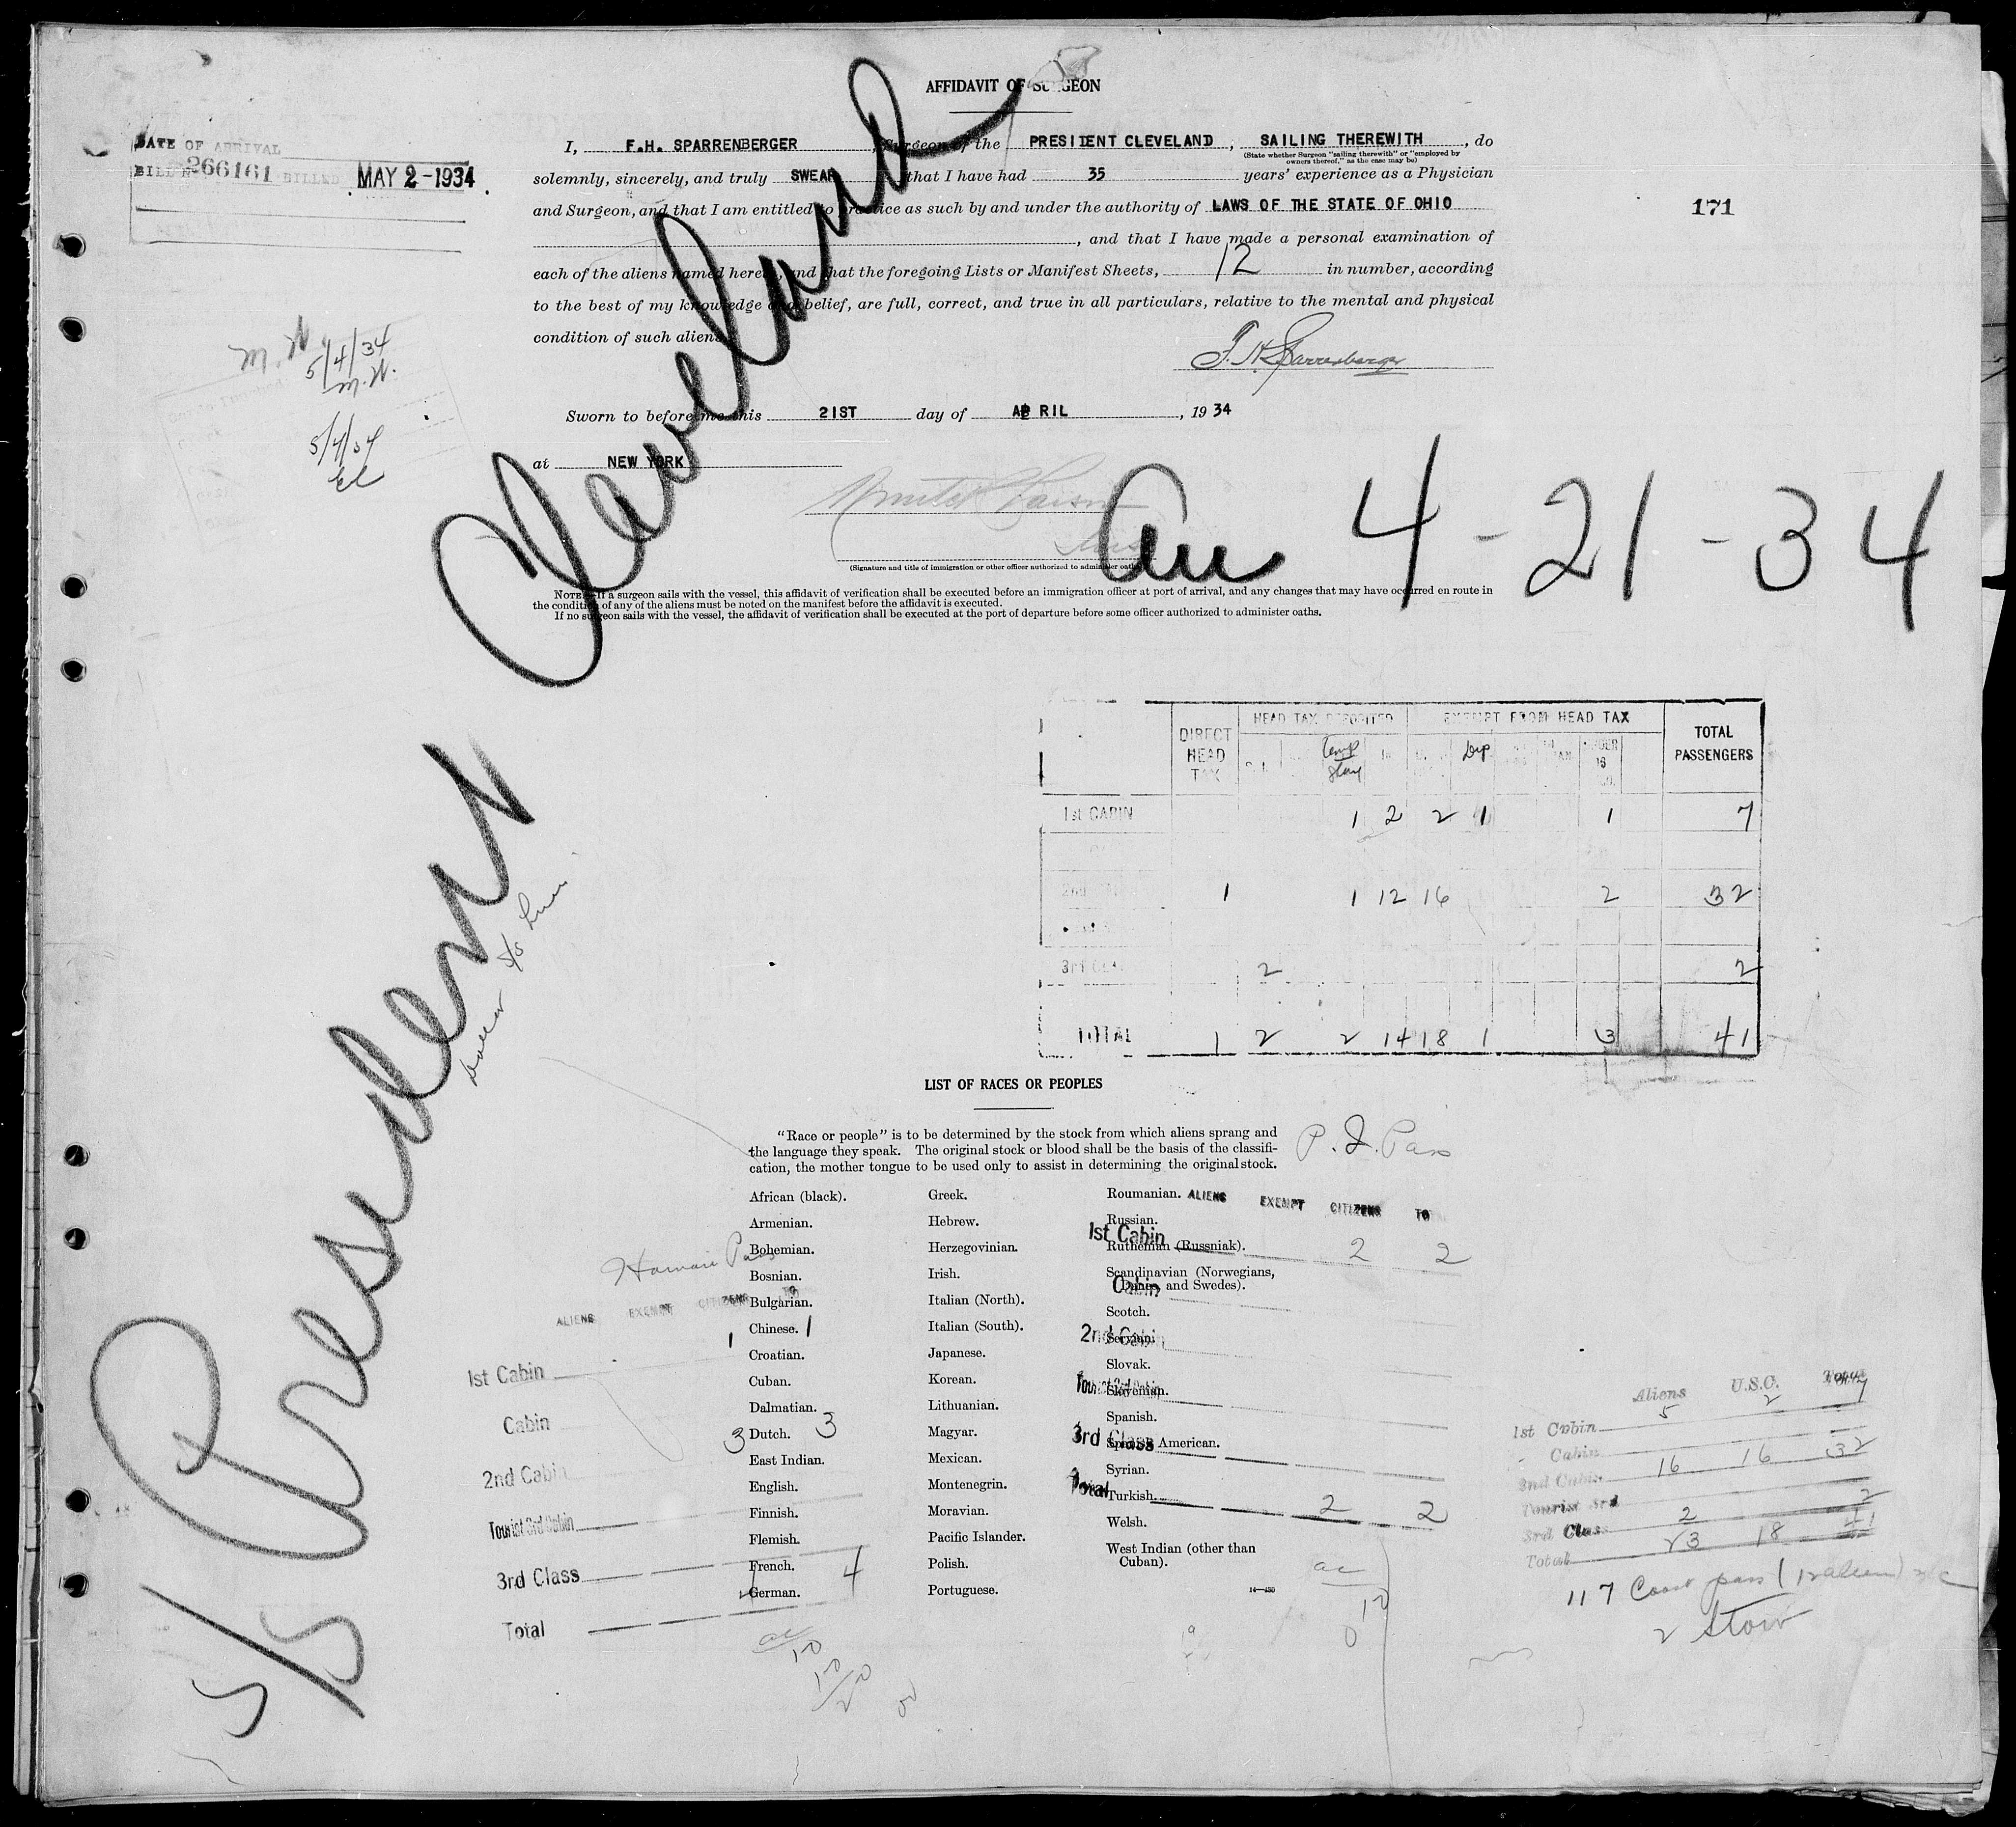 AFFIDAVIT OF SURGEON
DATE OF ARRIVAL
BILL No 266161 BILLED MAY 2-1934
I, F.H. SPARRENBERGER, Surgeon of the PRESIDENT CLEVELAND, SAILING THEREWITH, do
(State whether Surgeon "sailing therewith" or "employed by owners thereof," as the case may be)
solemnly, sincerely, and truly SWEAR that I have had 35 years' experience as a Physician
and Surgeon, and that I am entitled to practice as such by and under the authority of LAWS OF THE STATE OF OHIO
, and that I have made a personal examination of
each of the aliens named herein, and that the foregoing Lists or Manifest Sheets, 12 in number, according
to the best of my knowledge and belief, are full, correct, and true in all particulars, relative to the mental and physical
condition of such aliens
171
F. H. Sparrenberger
M.N.
5/4/34
M.N.
5/4/34
El
Sworn to before me this 21ST day of APRIL, 1934
at NEW YORK
(Signature and title of immigration or other officer authorized to administer oaths)
NOTE.—If a surgeon sails with the vessel, this affidavit of verification shall be executed before an immigration officer at port of arrival, and any changes that may have occurred en route in
the condition of any of the aliens must be noted on the manifest before the affidavit is executed.
If no surgeon sails with the vessel, the affidavit of verification shall be executed at the port of departure before some officer authorized to administer oaths.
S/S President Cleveland
Arr 4-21-34
Dollar S/S Line
DIRECT HEAD TAX
HEAD TAX DEPOSITED
EXEMPT FROM HEAD TAX
TOTAL PASSENGERS
Temp Stay
Dip
UNDER 16
1st CABIN 1 2 2 1 1 7
2nd 1 1 12 16 2 32
3rd CLASS 2 2
TOTAL 1 2 2 14 18 1 3 41
LIST OF RACES OR PEOPLES
"Race or people" is to be determined by the stock from which aliens sprang and
the language they speak. The original stock or blood shall be the basis of the classifi-
cation, the mother tongue to be used only to assist in determining the original stock.
P. I. Pass
African (black).
Armenian.
Bohemian.
Bosnian.
Bulgarian.
Chinese. 1
Croatian.
Cuban.
Dalmatian.
3 Dutch. 3
East Indian.
English.
Finnish.
Flemish.
French.
German. 4
Greek.
Hebrew.
Herzegovinian.
Irish.
Italian (North).
Italian (South).
Japanese.
Korean.
Lithuanian.
Magyar.
Mexican.
Montenegrin.
Moravian.
Pacific Islander.
Polish.
Portuguese.
Roumanian.
Russian.
Ruthenian (Russniak).
Scandinavian (Norwegians,
Danes, and Swedes).
Scotch.
Servian.
Slovak.
Slovenian.
Spanish.
Spanish American.
Syrian.
Turkish.
Welsh.
West Indian (other than
Cuban).
ALIENS EXEMPT CITIZENS TO
1st Cabin 2 2
Cabin
2nd Cabin
Tourist 3rd Cabin
3rd Class
Total 2 2
Hawaii Pass
ALIENS EXEMPT CITIZENS TO
1st Cabin 1
Cabin
2nd Cabin
Tourist 3rd Cabin
3rd Class
Total
Aliens U.S.C. Total
1st Cabin 5 2 7
Cabin
2nd Cabin 16 16 32
Tourist 3rd
3rd Class 2 2
Total 23 18 41
117 Coast pass
2 Stow